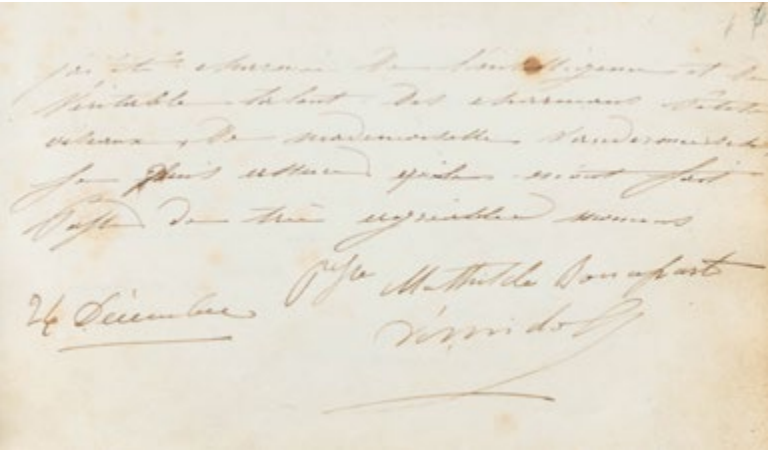 j'ai été charmée de l'intelligence et du
véritable talent des charmans petits
oiseaux, de mademoiselle Vandermeersch
je puis assurer qu'ils m'ont fait
passer de très agréables momens
Psse Mathilde Bonaparte
24 Décembre
Démidoff